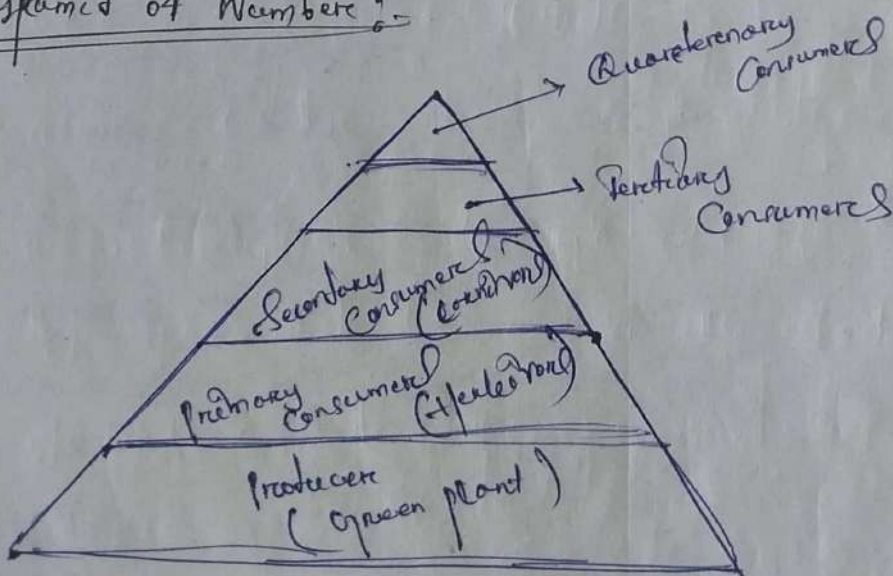 of Number :-
Quareterenary
Consumers
Teretiary
Consumers
Secondary
Consumers
(Carnivors)
Primary
Consumers
(Herbivors)
Producer
(Green plant)